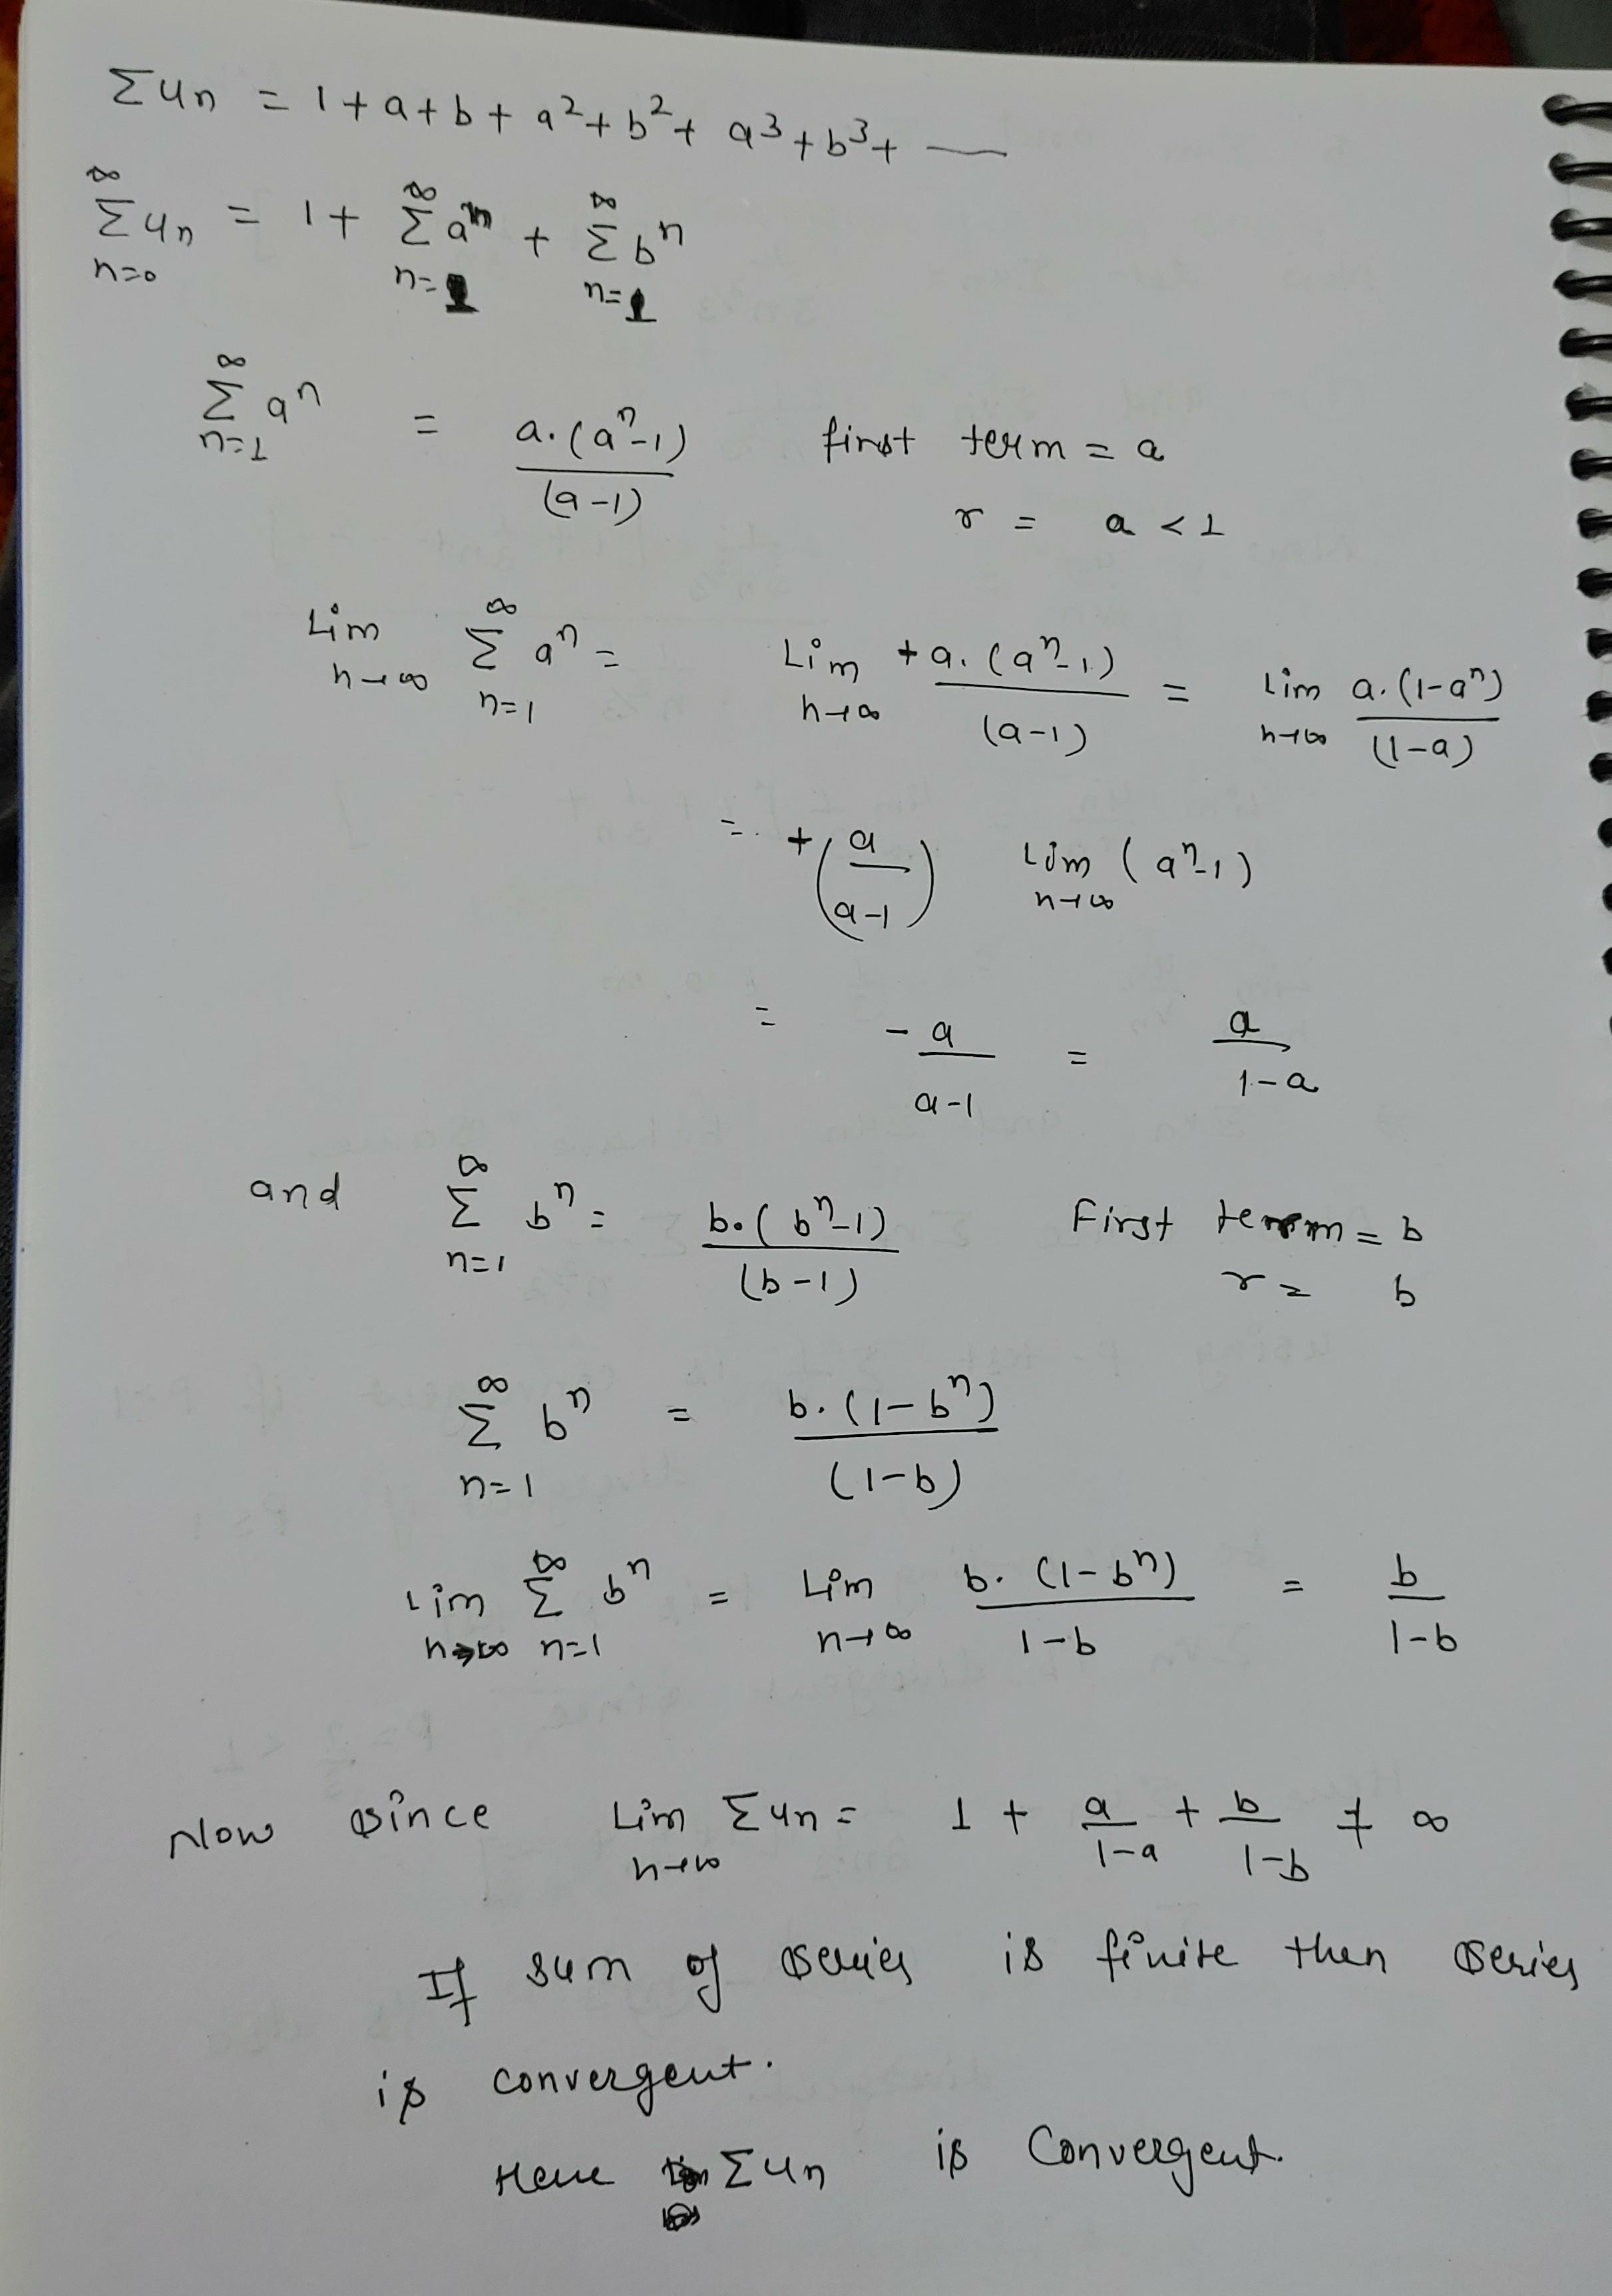 Σun = 1 + a + b + a² + b² + a³ + b³ + —
∞ Σ un n=0 = 1 + ∞ Σ aⁿ n=1 + ∞ Σ bⁿ n=1
∞ Σ aⁿ n=1 = a.(aⁿ-1) / (a-1) first term = a
r = a < 1
Lim n→∞ ∞ Σ aⁿ n=1 = Lim n→∞ +a.(aⁿ-1) / (a-1) = Lim n→∞ a.(1-aⁿ) / (1-a)
= +(a / a-1) Lim n→∞ (aⁿ-1)
= -a / a-1 = a / 1-a
and ∞ Σ bⁿ n=1 = b.(bⁿ-1) / (b-1) First term = b
r = b
∞ Σ bⁿ n=1 = b.(1-bⁿ) / (1-b)
Lim n→∞ ∞ Σ bⁿ n=1 = Lim n→∞ b.(1-bⁿ) / 1-b = b / 1-b
Now since Lim n→∞ Σun = 1 + a / 1-a + b / 1-b ≠ ∞
If sum of series is finite then series
is convergent.
Here Σun is Convergent.